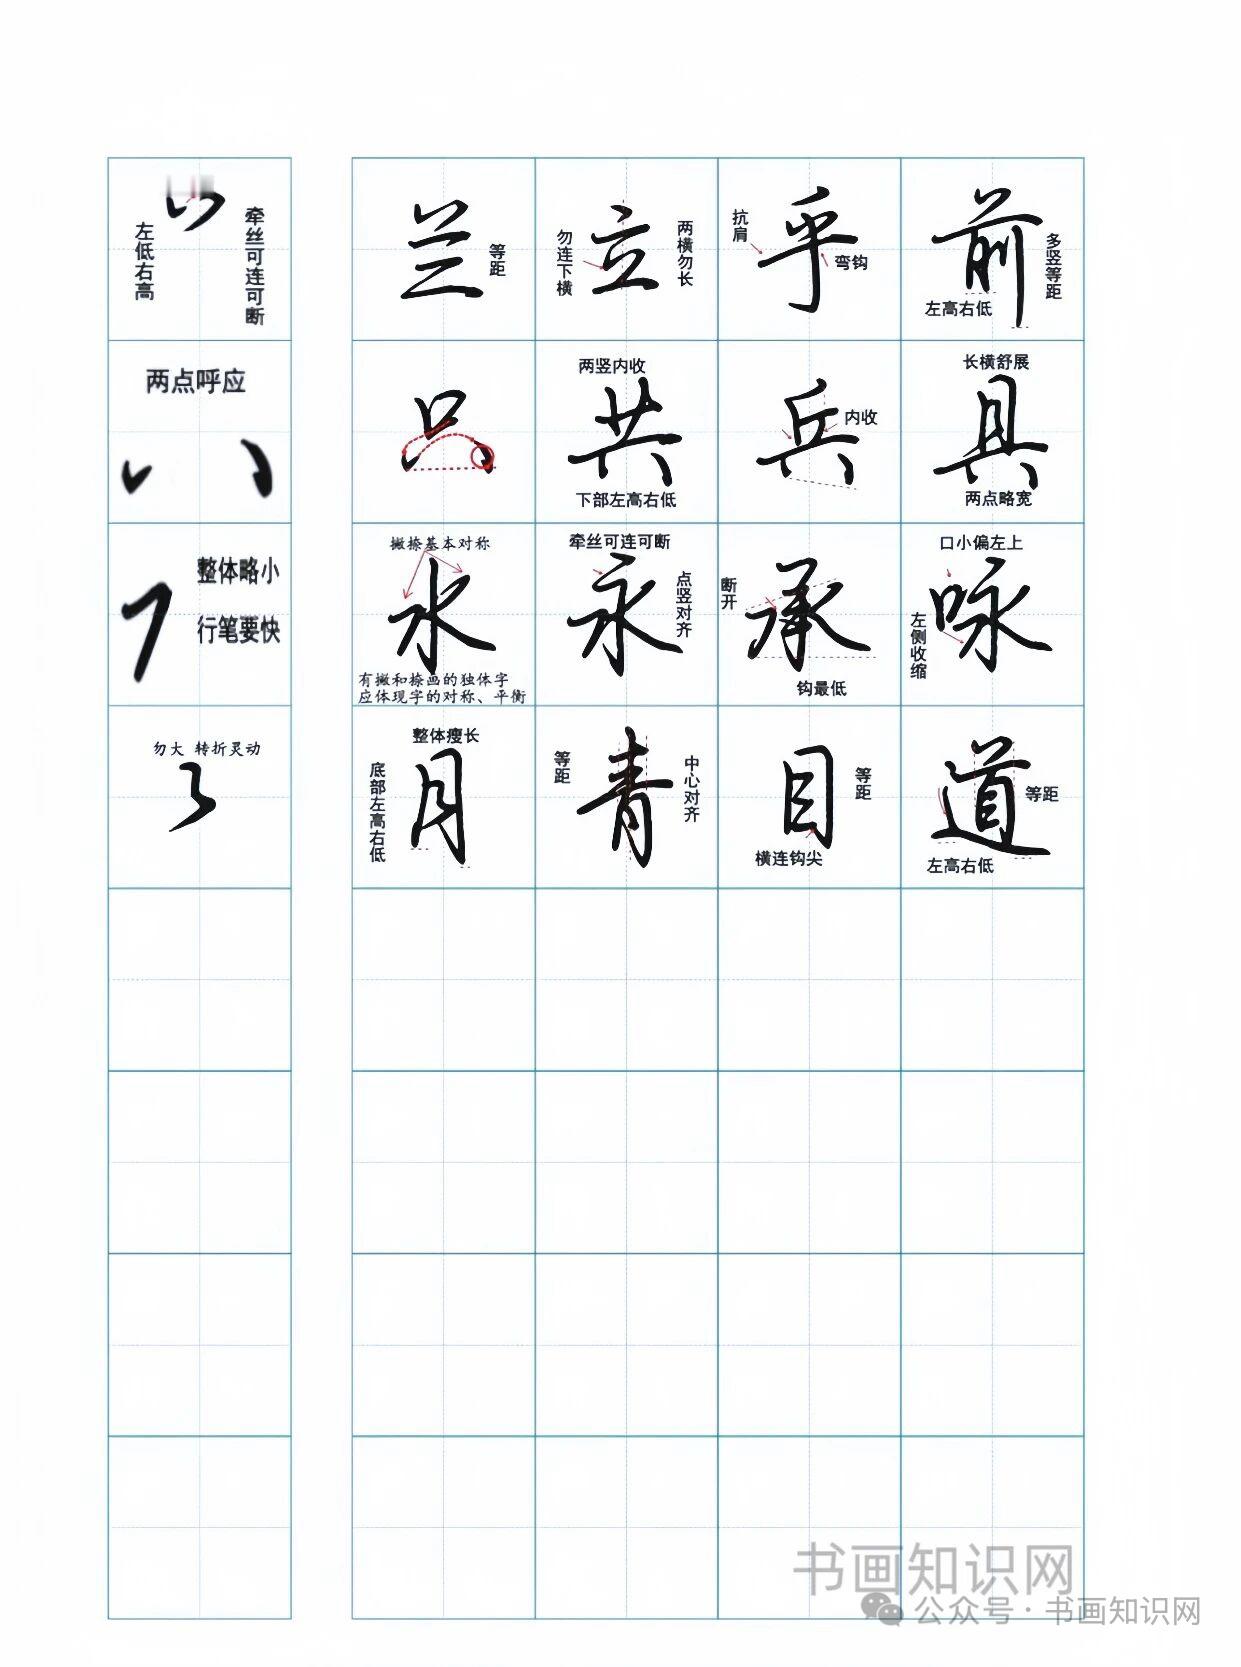 左低右高
牵丝可连可断
兰
等距
勿连下横
立
两横勿长
抗肩
乎
弯钩
前
多竖等距
左高右低
两点呼应
只
两竖内收
共
下部左高右低
兵
内收
长横舒展
具
两点略宽
整体略小
行笔要快
撇捺基本对称
水
有撇和捺画的独体字
应体现字的对称、平衡
牵丝可连可断
永
点竖对齐
断开
承
钩最低
口小偏左上
咏
左侧收缩
勿大 转折灵动
整体瘦长
月
底部左高右低
等距
青
中心对齐
目
等距
横连钩尖
道
等距
左高右低
书画知识网
公众号·书画知识网